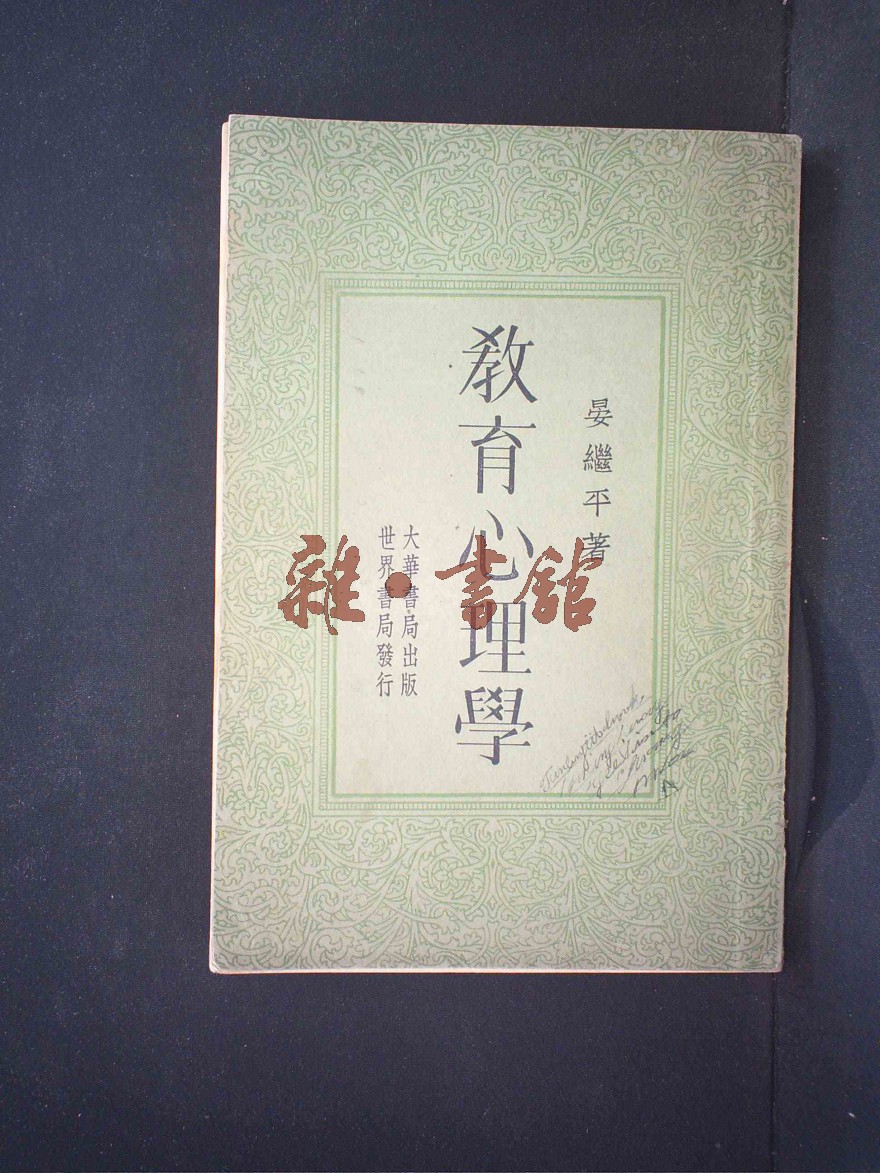 晏繼平著
教育心理學
大華書局出版
世界書局發行
雜·書館